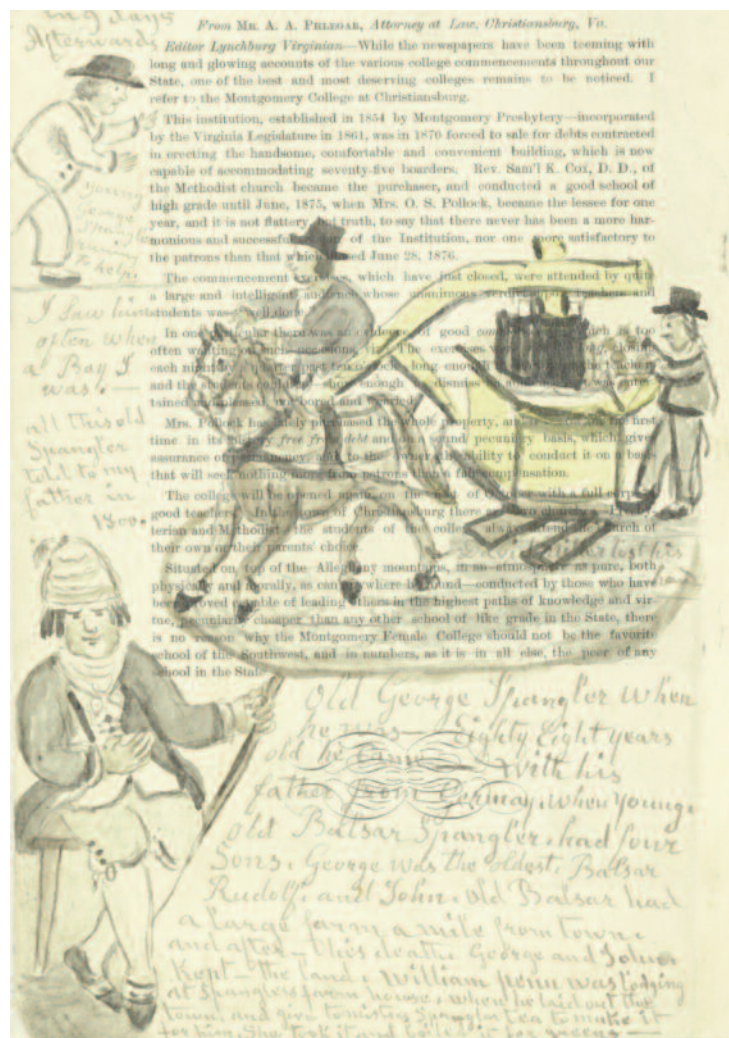 From MR. A. A. PHLEGAR, Attorney at Law, Christiansburg, Va.
Editor Lynchburg Virginian—While the newspapers have been teeming with
long and glowing accounts of the various college commencements throughout our
State, one of the best and most deserving colleges remains to be noticed. I
refer to the Montgomery College at Christiansburg.
This institution, established in 1854 by Montgomery Presbytery—incorporated
by the Virginia Legislature in 1861, was in 1870 forced to sale for debts contracted
in erecting the handsome, comfortable and convenient building, which is now
capable of accommodating seventy-five boarders. Rev. Sam'l K. Cox, D. D., of
the Methodist church became the purchaser, and conducted a good school of
high grade until June, 1875, when Mrs. O. S. Pollock, became the lessee for one
year, and it is not flattery but truth, to say that there never has been a more har-
monious and successful of the Institution, nor one more satisfactory to
the patrons than that which closed June 28, 1876.
The commencement exercises, which have just closed, were attended by quite
a large and intelligent audience whose unanimous verdict upon teachers and
students was well done
In one particular there was an evidence of good which is too
often wanting on such occasions, viz: The exercises were closing
each night at a quarter past ten o'clock—long enough teachers
and the students enough to dismiss was enter-
tained and pleased, not bored and wearied.
Mrs. Pollock has lately purchased the whole property, and for the first
time in its history free from debt and on a sound pecuniary basis, which gives
assurance of permanency, and to the owner the ability to conduct it on a basis
that will seek nothing more from patrons than a fair compensation.
The college will be opened again on the of October with a full corps of
good teachers. In the town of Christiansburg there are two churches—Presby-
terian and Methodist—the students of the college always attend the church of
their own or their parents' choice.
Situated on top of the Alleghany mountains, in an atmosphere as pure, both
physically and morally, as can anywhere be found—conducted by those who have
been proved capable of leading others in the highest paths of knowledge and vir-
tue, peculiarly cheaper than any other school of like grade in the State, there
is no reason why the Montgomery Female College should not be the favorite
school of the Southwest, and in numbers, as it is in all else, the peer of any
school in the State.
ing days
Afterwards
young
George
Spangler
running
to help.
I Saw him
often when
a Boy I
was.—
all this old
Spangler
told to my
father in
1800.
lost his
Old George Spangler when
he was— Eighty Eight years
old he came— With his
father from Germay, when young.
old Balsar Spangler, had four
Sons, George was the oldest, Balsar
Rudolf, and John, old Balsar had
a large farm a mile from town,
and after— this death, George and John
Kept— the land, William penn was lodging
at Spanglers farm house, when he laid out the
town, and give to mistres Spangler tea to make it
for him, She took it and boiled it for greens —